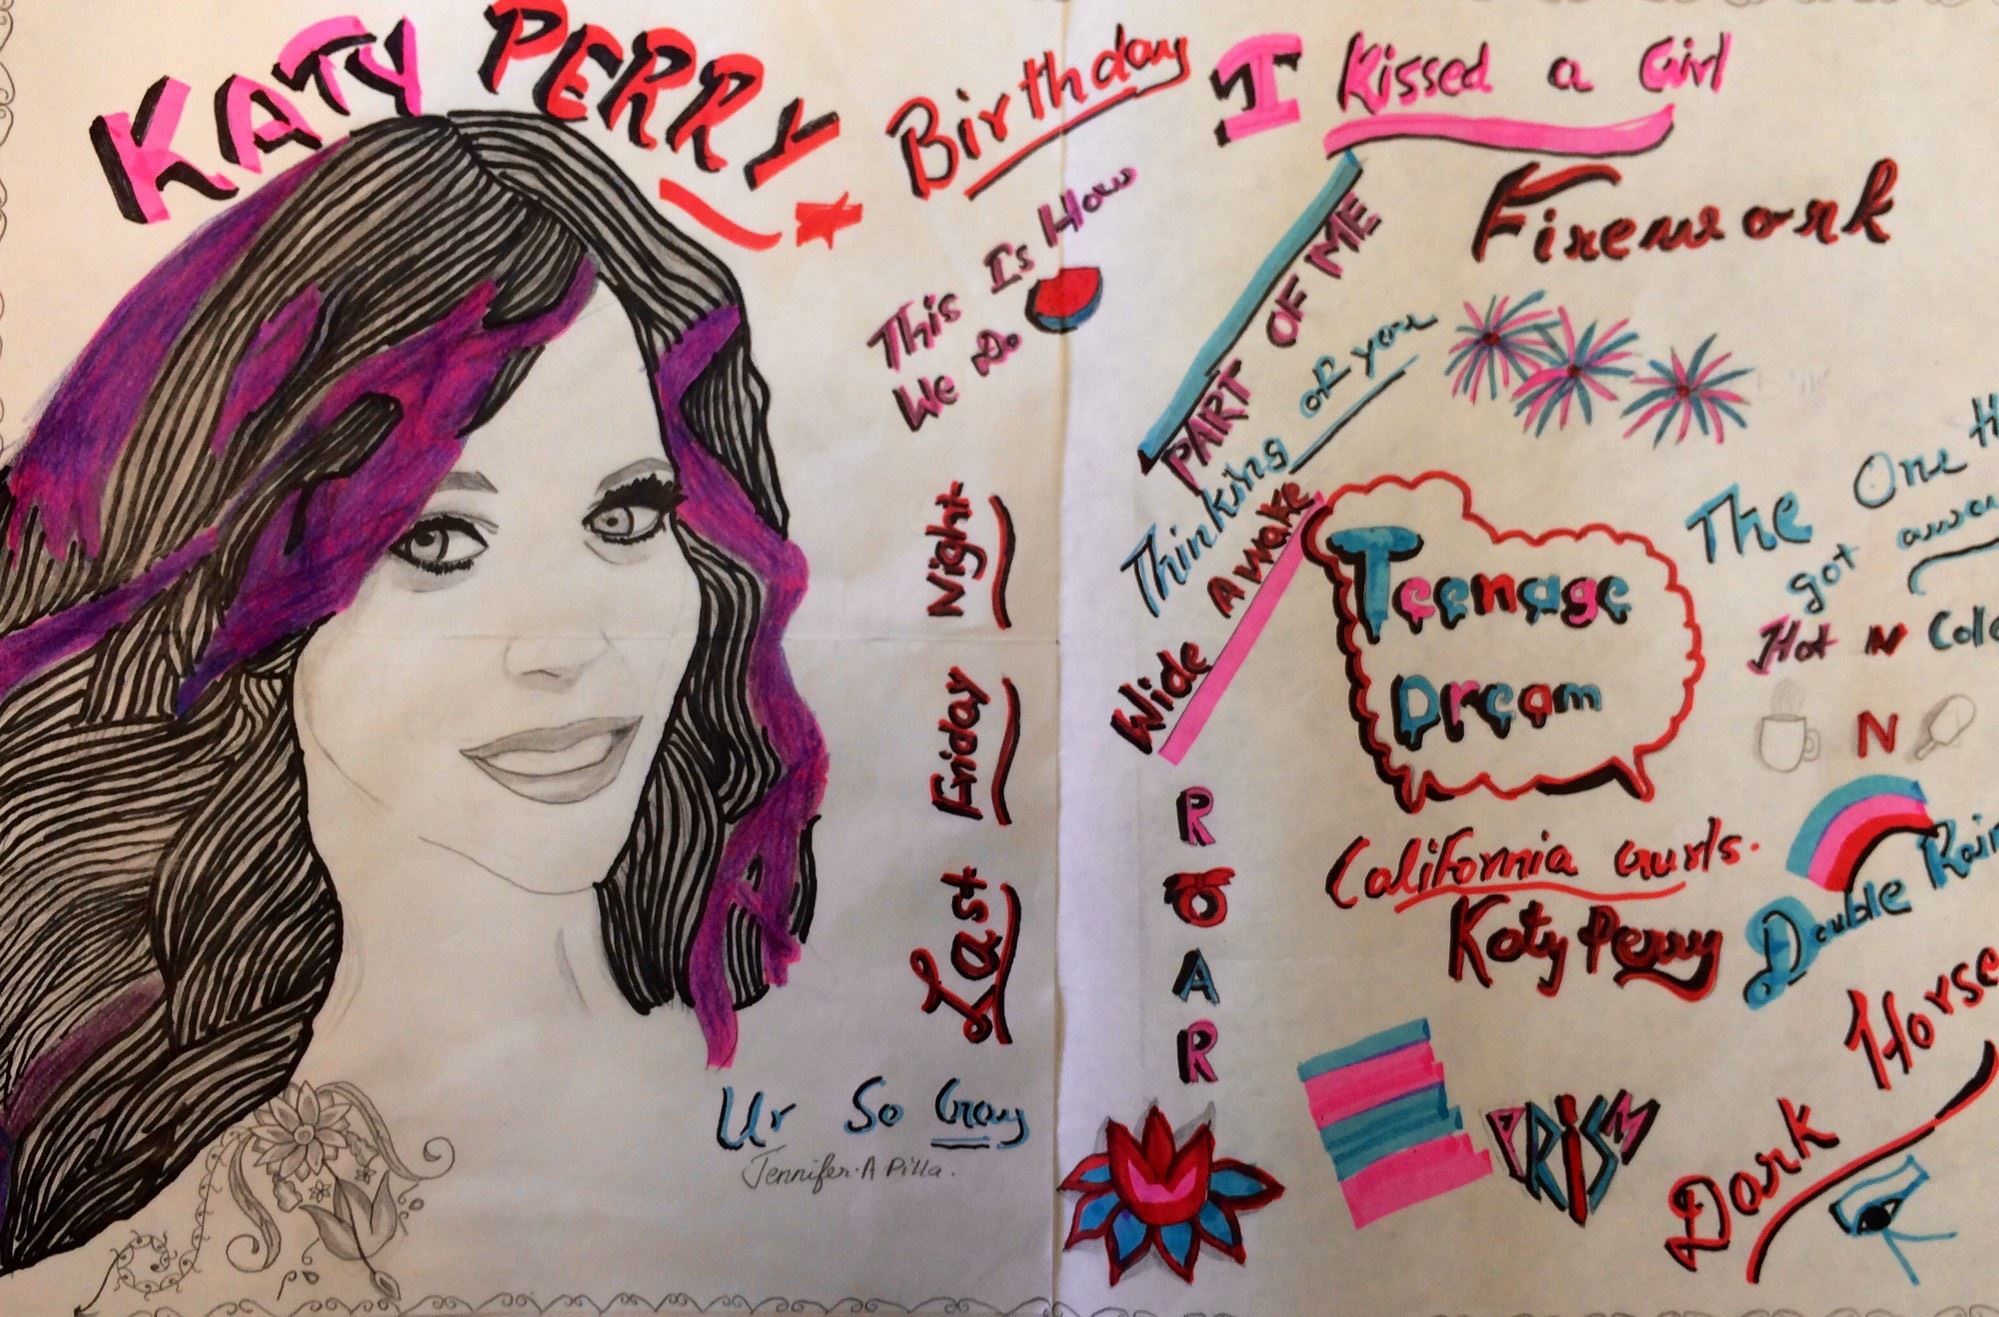 KATY PERRY
Birthday
I Kissed a Girl
This Is How
We Do
PART OF ME
Firework
Thinking of you
Wide Awake
Teenage
Dream
The One
got
Hot N Cold
N
Last Friday Night
ROAR
California Gurls.
Katy Perry
Double
Dark Horse
PRISM
Ur So Gay
Jennifer.A Pilla.